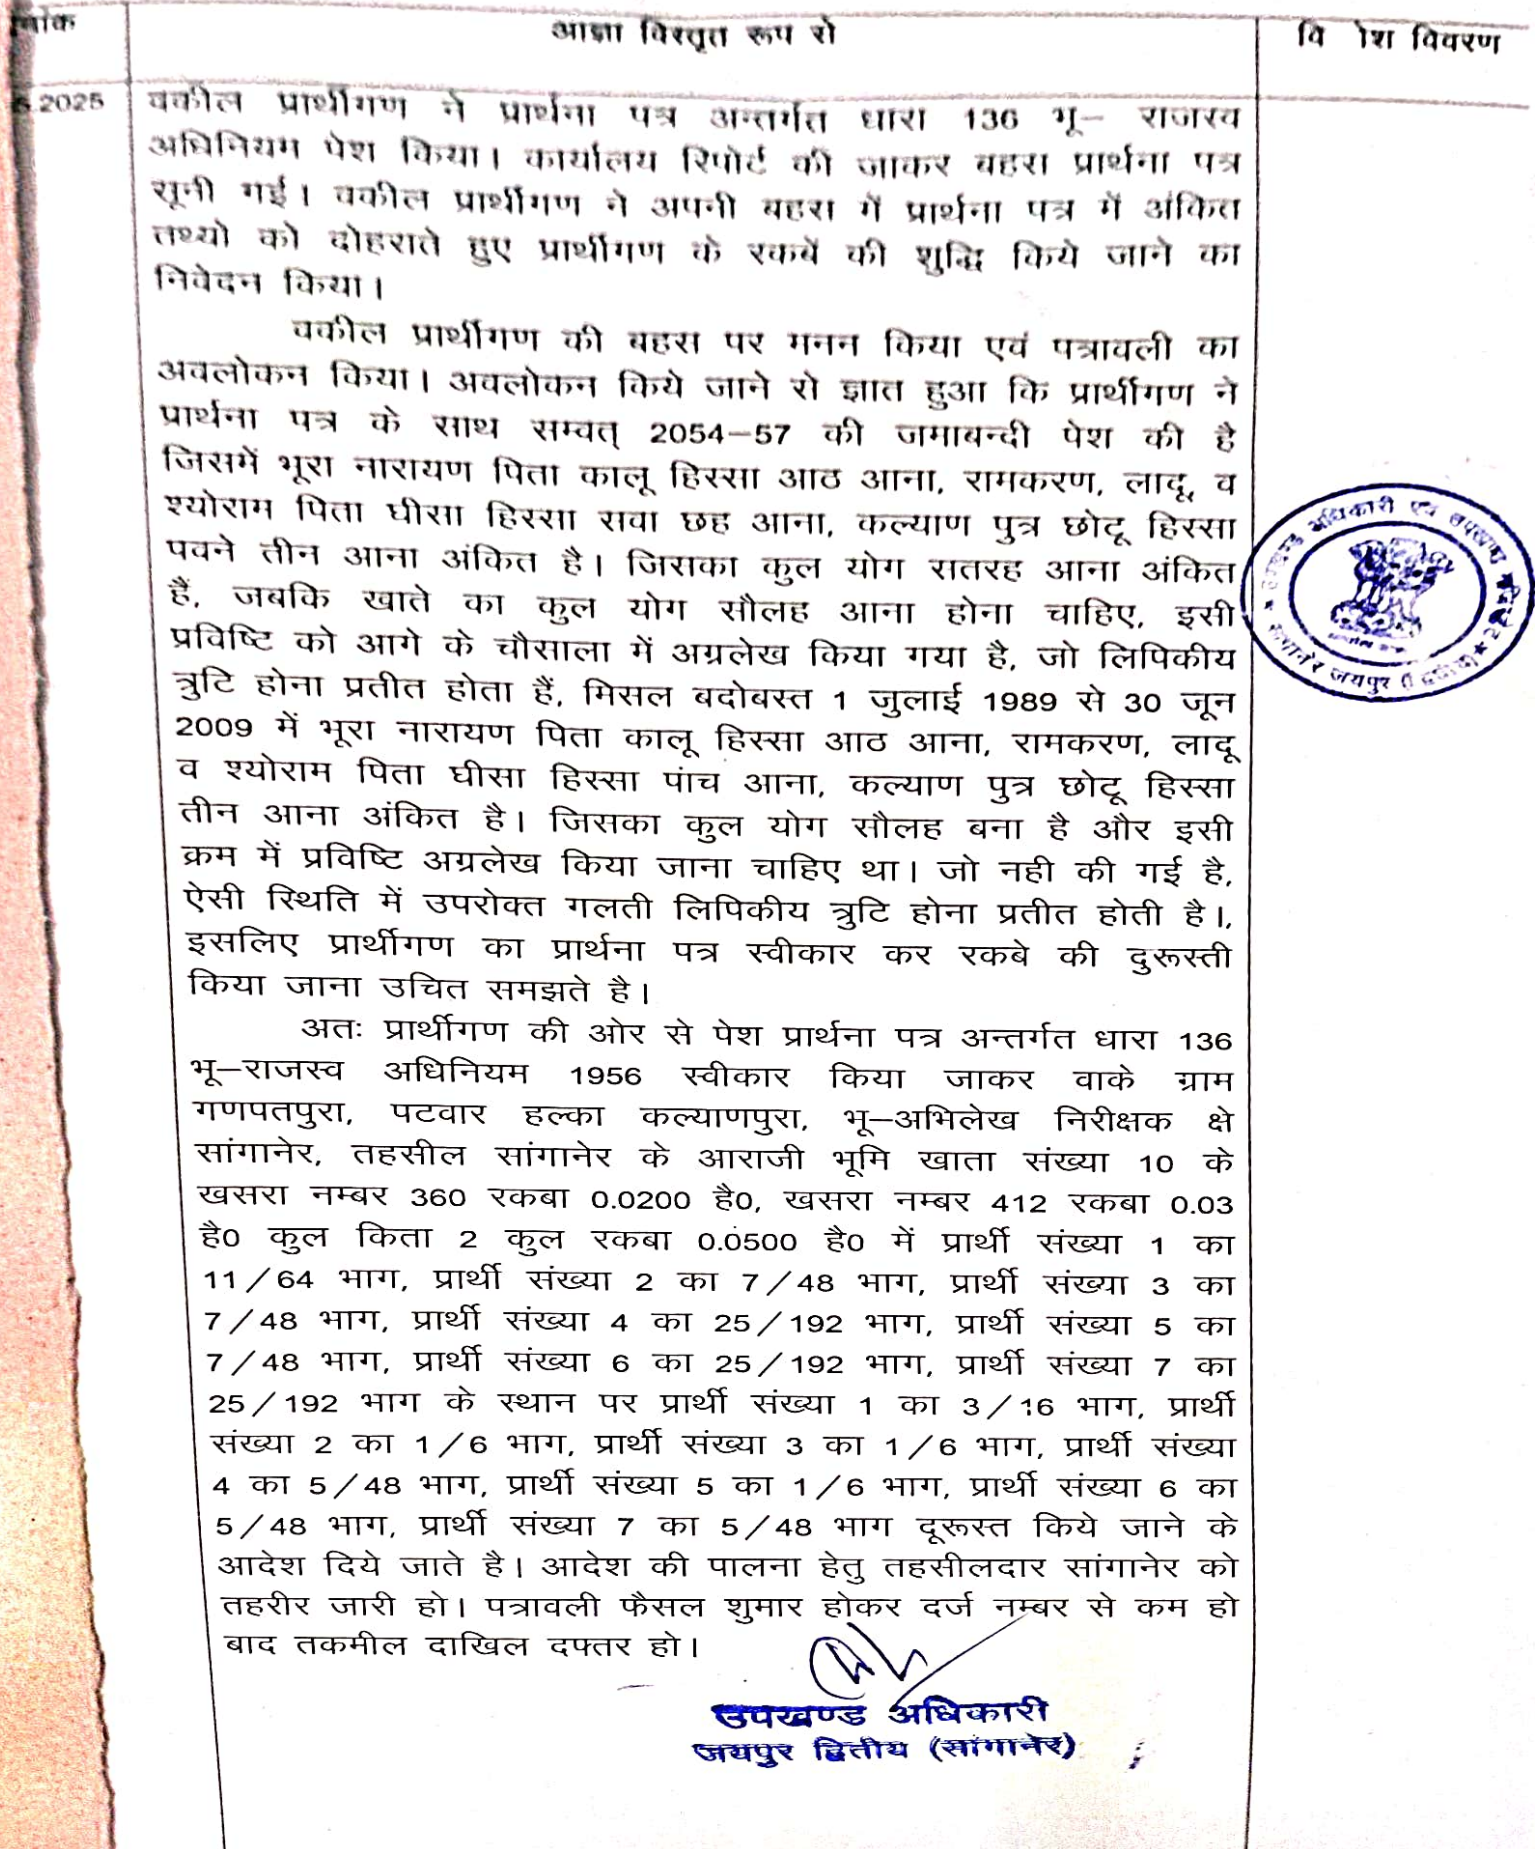 आज्ञा विस्तृत रूप से
वि ोश विवरण
.2025
वकील प्रार्थीगण ने प्रार्थना पत्र अन्तर्गत धारा 136 भू– राजस्व
अधिनियम पेश किया। कार्यालय रिपोर्ट की जाकर बहस प्रार्थना पत्र
सूनी गई। वकील प्रार्थीगण ने अपनी बहस में प्रार्थना पत्र में अंकित
तथ्यो को दोहराते हुए प्रार्थीगण के रकबें की शुद्धि किये जाने का
निवेदन किया।
वकील प्रार्थीगण की बहस पर मनन किया एवं पत्रावली का
अवलोकन किया। अवलोकन किये जाने से ज्ञात हुआ कि प्रार्थीगण ने
प्रार्थना पत्र के साथ सम्वत् 2054–57 की जमाबन्दी पेश की है
जिसमें भूरा नारायण पिता कालू हिस्सा आठ आना, रामकरण, लादू, व
श्योराम पिता घीसा हिस्सा सवा छह आना, कल्याण पुत्र छोटू हिस्सा
पवने तीन आना अंकित है। जिसका कुल योग सतरह आना अंकित
हैं, जबकि खाते का कुल योग सौलह आना होना चाहिए, इसी
प्रविष्टि को आगे के चौसाला में अग्रलेख किया गया है, जो लिपिकीय
त्रुटि होना प्रतीत होता हैं, मिसल बदोबस्त 1 जुलाई 1989 से 30 जून
2009 में भूरा नारायण पिता कालू हिस्सा आठ आना, रामकरण, लादू
व श्योराम पिता घीसा हिस्सा पांच आना, कल्याण पुत्र छोटू हिस्सा
तीन आना अंकित है। जिसका कुल योग सौलह बना है और इसी
क्रम में प्रविष्टि अग्रलेख किया जाना चाहिए था। जो नही की गई है,
ऐसी स्थिति में उपरोक्त गलती लिपिकीय त्रुटि होना प्रतीत होती है।,
इसलिए प्रार्थीगण का प्रार्थना पत्र स्वीकार कर रकबे की दुरूस्ती
किया जाना उचित समझते है।
अतः प्रार्थीगण की ओर से पेश प्रार्थना पत्र अन्तर्गत धारा 136
भू–राजस्व अधिनियम 1956 स्वीकार किया जाकर वाके ग्राम
गणपतपुरा, पटवार हल्का कल्याणपुरा, भू–अभिलेख निरीक्षक क्षे
सांगानेर, तहसील सांगानेर के आराजी भूमि खाता संख्या 10 के
खसरा नम्बर 360 रकबा 0.0200 है0, खसरा नम्बर 412 रकबा 0.03
है0 कुल किता 2 कुल रकबा 0.0500 है0 में प्रार्थी संख्या 1 का
11/64 भाग, प्रार्थी संख्या 2 का 7/48 भाग, प्रार्थी संख्या 3 का
7/48 भाग, प्रार्थी संख्या 4 का 25/192 भाग, प्रार्थी संख्या 5 का
7/48 भाग, प्रार्थी संख्या 6 का 25/192 भाग, प्रार्थी संख्या 7 का
25/192 भाग के स्थान पर प्रार्थी संख्या 1 का 3/16 भाग, प्रार्थी
संख्या 2 का 1/6 भाग, प्रार्थी संख्या 3 का 1/6 भाग, प्रार्थी संख्या
4 का 5/48 भाग, प्रार्थी संख्या 5 का 1/6 भाग, प्रार्थी संख्या 6 का
5/48 भाग, प्रार्थी संख्या 7 का 5/48 भाग दूरूस्त किये जाने के
आदेश दिये जाते है। आदेश की पालना हेतु तहसीलदार सांगानेर को
तहरीर जारी हो। पत्रावली फैसल शुमार होकर दर्ज नम्बर से कम हो
बाद तकमील दाखिल दफ्तर हो।
उपखण्ड अधिकारी
जयपुर द्वितीय (सांगानेर)
अधिकारी एवं उपखण्ड
जयपुर